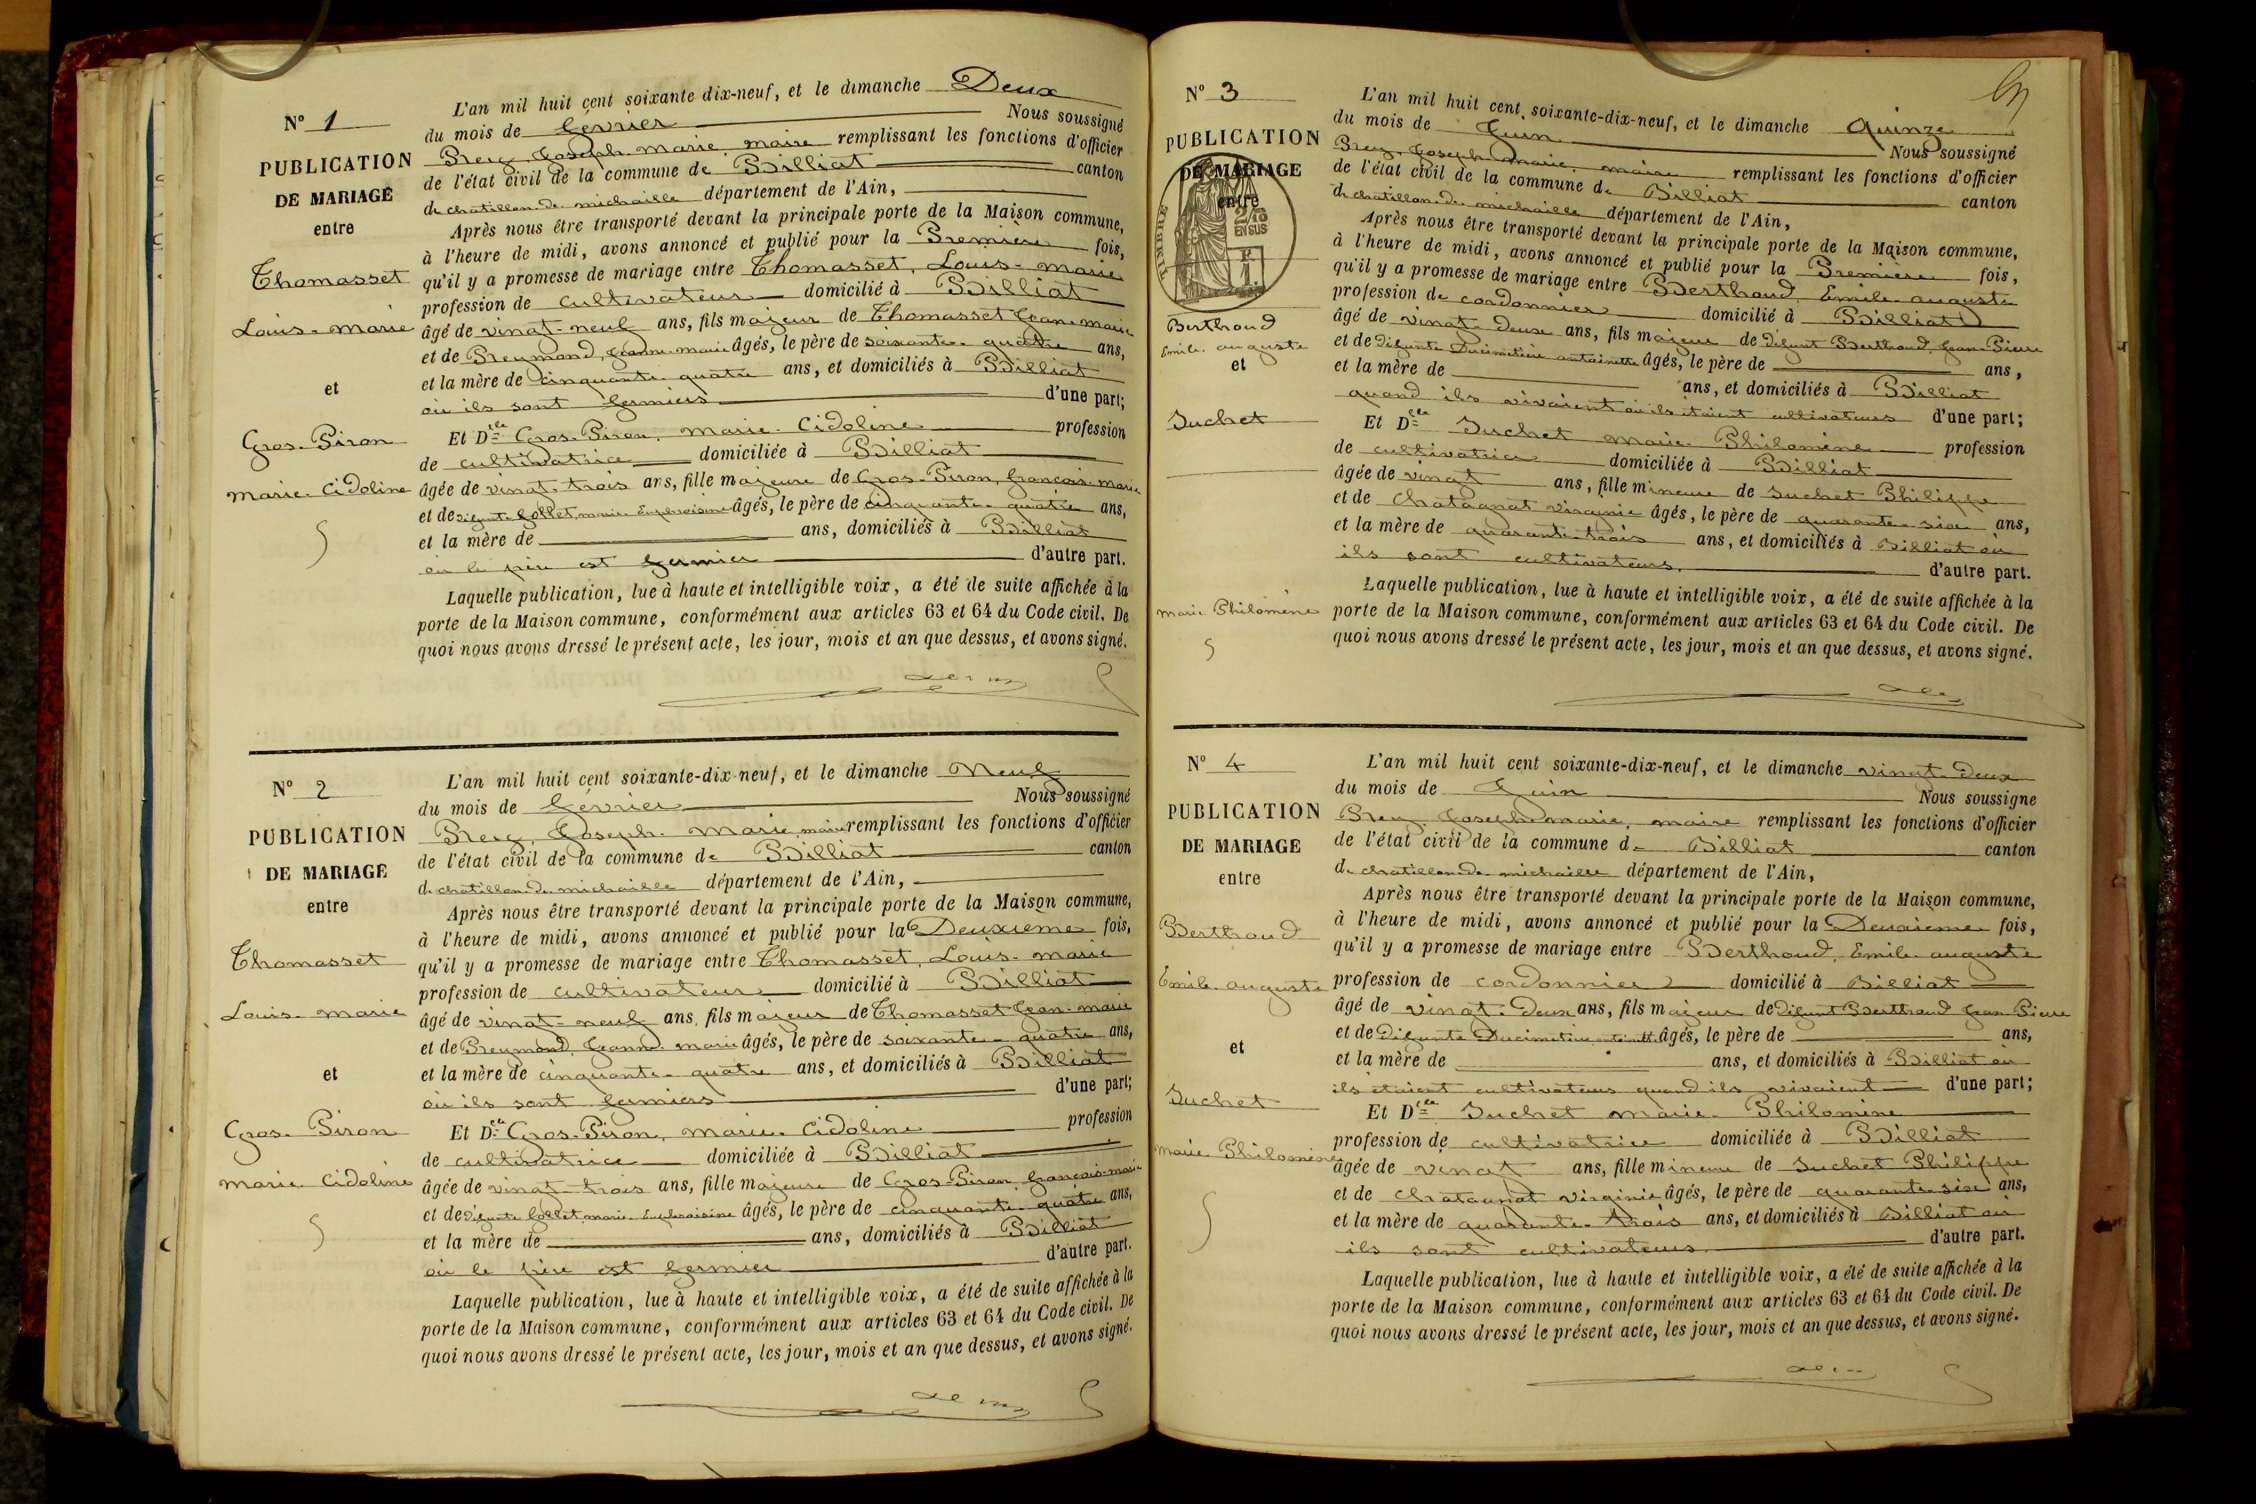 N° 1
PUBLICATION
DE MARIAGE
entre
Thomasset
Louis-marie
et
Gros-Piron
marie-Cidoline
L'an mil huit cent soixante dix-neuf, et le dimanche Deux
du mois de février Nous soussigné
Joseph marie maire remplissant les fonctions d'officier
de l'état civil de la commune de Billiat canton
de chatillon-de-michaille département de l'Ain,
Après nous être transporté devant la principale porte de la Maison commune,
à l'heure de midi, avons annoncé et publié pour la Première fois,
qu'il y a promesse de mariage entre Thomasset, Louis-marie
profession de cultivateur domicilié à Billiat
âgé de vingt-neuf ans, fils majeur de Thomasset Jean-marie
et de Preymond, Jeanne-marie âgés, le père de soixante-quatre ans,
et la mère de cinquante-quatre ans, et domiciliés à Billiat
où ils sont fermiers d'une part;
Et Dlle Gros-Piron, marie-Cidoline profession
de cultivatrice domiciliée à Billiat
âgée de vingt-trois ans, fille majeure de Gros-Piron, françois-marie
et de défunte marie âgés, le père de cinquante-quatre ans,
et la mère de ans, domiciliés à Billiat
où le père est fermier d'autre part.
Laquelle publication, lue à haute et intelligible voix, a été de suite affichée à la
porte de la Maison commune, conformément aux articles 63 et 64 du Code civil. De
quoi nous avons dressé le présent acte, les jour, mois et an que dessus, et avons signé.
N° 2
PUBLICATION
DE MARIAGE
entre
Thomasset
Louis-marie
et
Gros-Piron
marie Cidoline
L'an mil huit cent soixante-dix-neuf, et le dimanche Neuf
du mois de février Nous soussigné
Joseph-Marie, maire remplissant les fonctions d'officier
de l'état civil de la commune de Billiat canton
de chatillon-de-michaille département de l'Ain,
Après nous être transporté devant la principale porte de la Maison commune,
à l'heure de midi, avons annoncé et publié pour la Deuxième fois,
qu'il y a promesse de mariage entre Thomasset, Louis-marie
profession de cultivateur domicilié à Billiat
âgé de vingt-neuf ans, fils majeur de Thomasset Jean-marie
et de Preymond, Jeanne-marie âgés, le père de soixante-quatre ans,
et la mère de cinquante-quatre ans, et domiciliés à Billiat
où ils sont fermiers d'une part;
Et Dlle Gros-Piron, marie-Cidoline profession
de cultivatrice domiciliée à Billiat
âgée de vingt-trois ans, fille majeure de Gros-Piron, françois-marie
et de défunte marie âgés, le père de cinquante-quatre ans,
et la mère de ans, domiciliés à Billiat
où le père est fermier d'autre part.
Laquelle publication, lue à haute et intelligible voix, a été de suite affichée à la
porte de la Maison commune, conformément aux articles 63 et 64 du Code civil. De
quoi nous avons dressé le présent acte, les jour, mois et an que dessus, et avons signé.
N° 3
PUBLICATION
DE MARIAGE
entre
TIMBRE
2/10
EN SUS
Berthoud
Emile-auguste
et
Suchet
marie-Philomène
L'an mil huit cent soixante-dix-neuf, et le dimanche Quinze
du mois de Juin Nous soussigné
Joseph-marie, maire remplissant les fonctions d'officier
de l'état civil de la commune de Billiat canton
de chatillon-de-michaille département de l'Ain,
Après nous être transporté devant la principale porte de la Maison commune,
à l'heure de midi, avons annoncé et publié pour la Première fois,
qu'il y a promesse de mariage entre Berthoud, Emile-auguste
profession de cordonnier domicilié à Billiat
âgé de vingt-deux ans, fils majeur de défunt Berthoud, Jean-Pierre
et de défunte Ducimetière antoinette âgés, le père de ans,
et la mère de ans, et domiciliés à Billiat
quand ils vivaient où ils étaient cultivateurs d'une part;
Et Dlle Suchet marie-Philomène profession
de cultivatrice domiciliée à Billiat
âgée de vingt ans, fille mineure de Suchet Philippe
et de Chatagnat Virginie âgés, le père de quarante-six ans,
et la mère de quarante-trois ans, et domiciliés à Billiat où
ils sont cultivateurs. d'autre part.
Laquelle publication, lue à haute et intelligible voix, a été de suite affichée à la
porte de la Maison commune, conformément aux articles 63 et 64 du Code civil. De
quoi nous avons dressé le présent acte, les jour, mois et an que dessus, et avons signé.
N° 4
PUBLICATION
DE MARIAGE
entre
Berthoud
Emile-auguste
et
Suchet
marie-Philomène
L'an mil huit cent soixante-dix-neuf, et le dimanche vingt-deux
du mois de Juin Nous soussigne
Joseph-marie, maire remplissant les fonctions d'officier
de l'état civil de la commune de Billiat canton
de chatillon-de-michaille département de l'Ain,
Après nous être transporté devant la principale porte de la Maison commune,
à l'heure de midi, avons annoncé et publié pour la Deuxième fois,
qu'il y a promesse de mariage entre Berthoud, Emile-auguste
profession de cordonnier domicilié à Billiat
âgé de vingt-deux ans, fils majeur de défunt Berthoud Jean-Pierre
et de défunte Ducimetière antoinette âgés, le père de ans,
et la mère de ans, et domiciliés à Billiat où
ils étaient cultivateurs quand ils vivaient d'une part;
Et Dlle Suchet marie-Philomène
profession de cultivatrice domiciliée à Billiat
âgée de vingt ans, fille mineure de Suchet Philippe
et de Chatagnat Virginie âgés, le père de quarante-six ans,
et la mère de quarante-trois ans, et domiciliés à Billiat où
ils sont cultivateurs d'autre part.
Laquelle publication, lue à haute et intelligible voix, a été de suite affichée à la
porte de la Maison commune, conformément aux articles 63 et 64 du Code civil. De
quoi nous avons dressé le présent acte, les jour, mois et an que dessus, et avons signé.